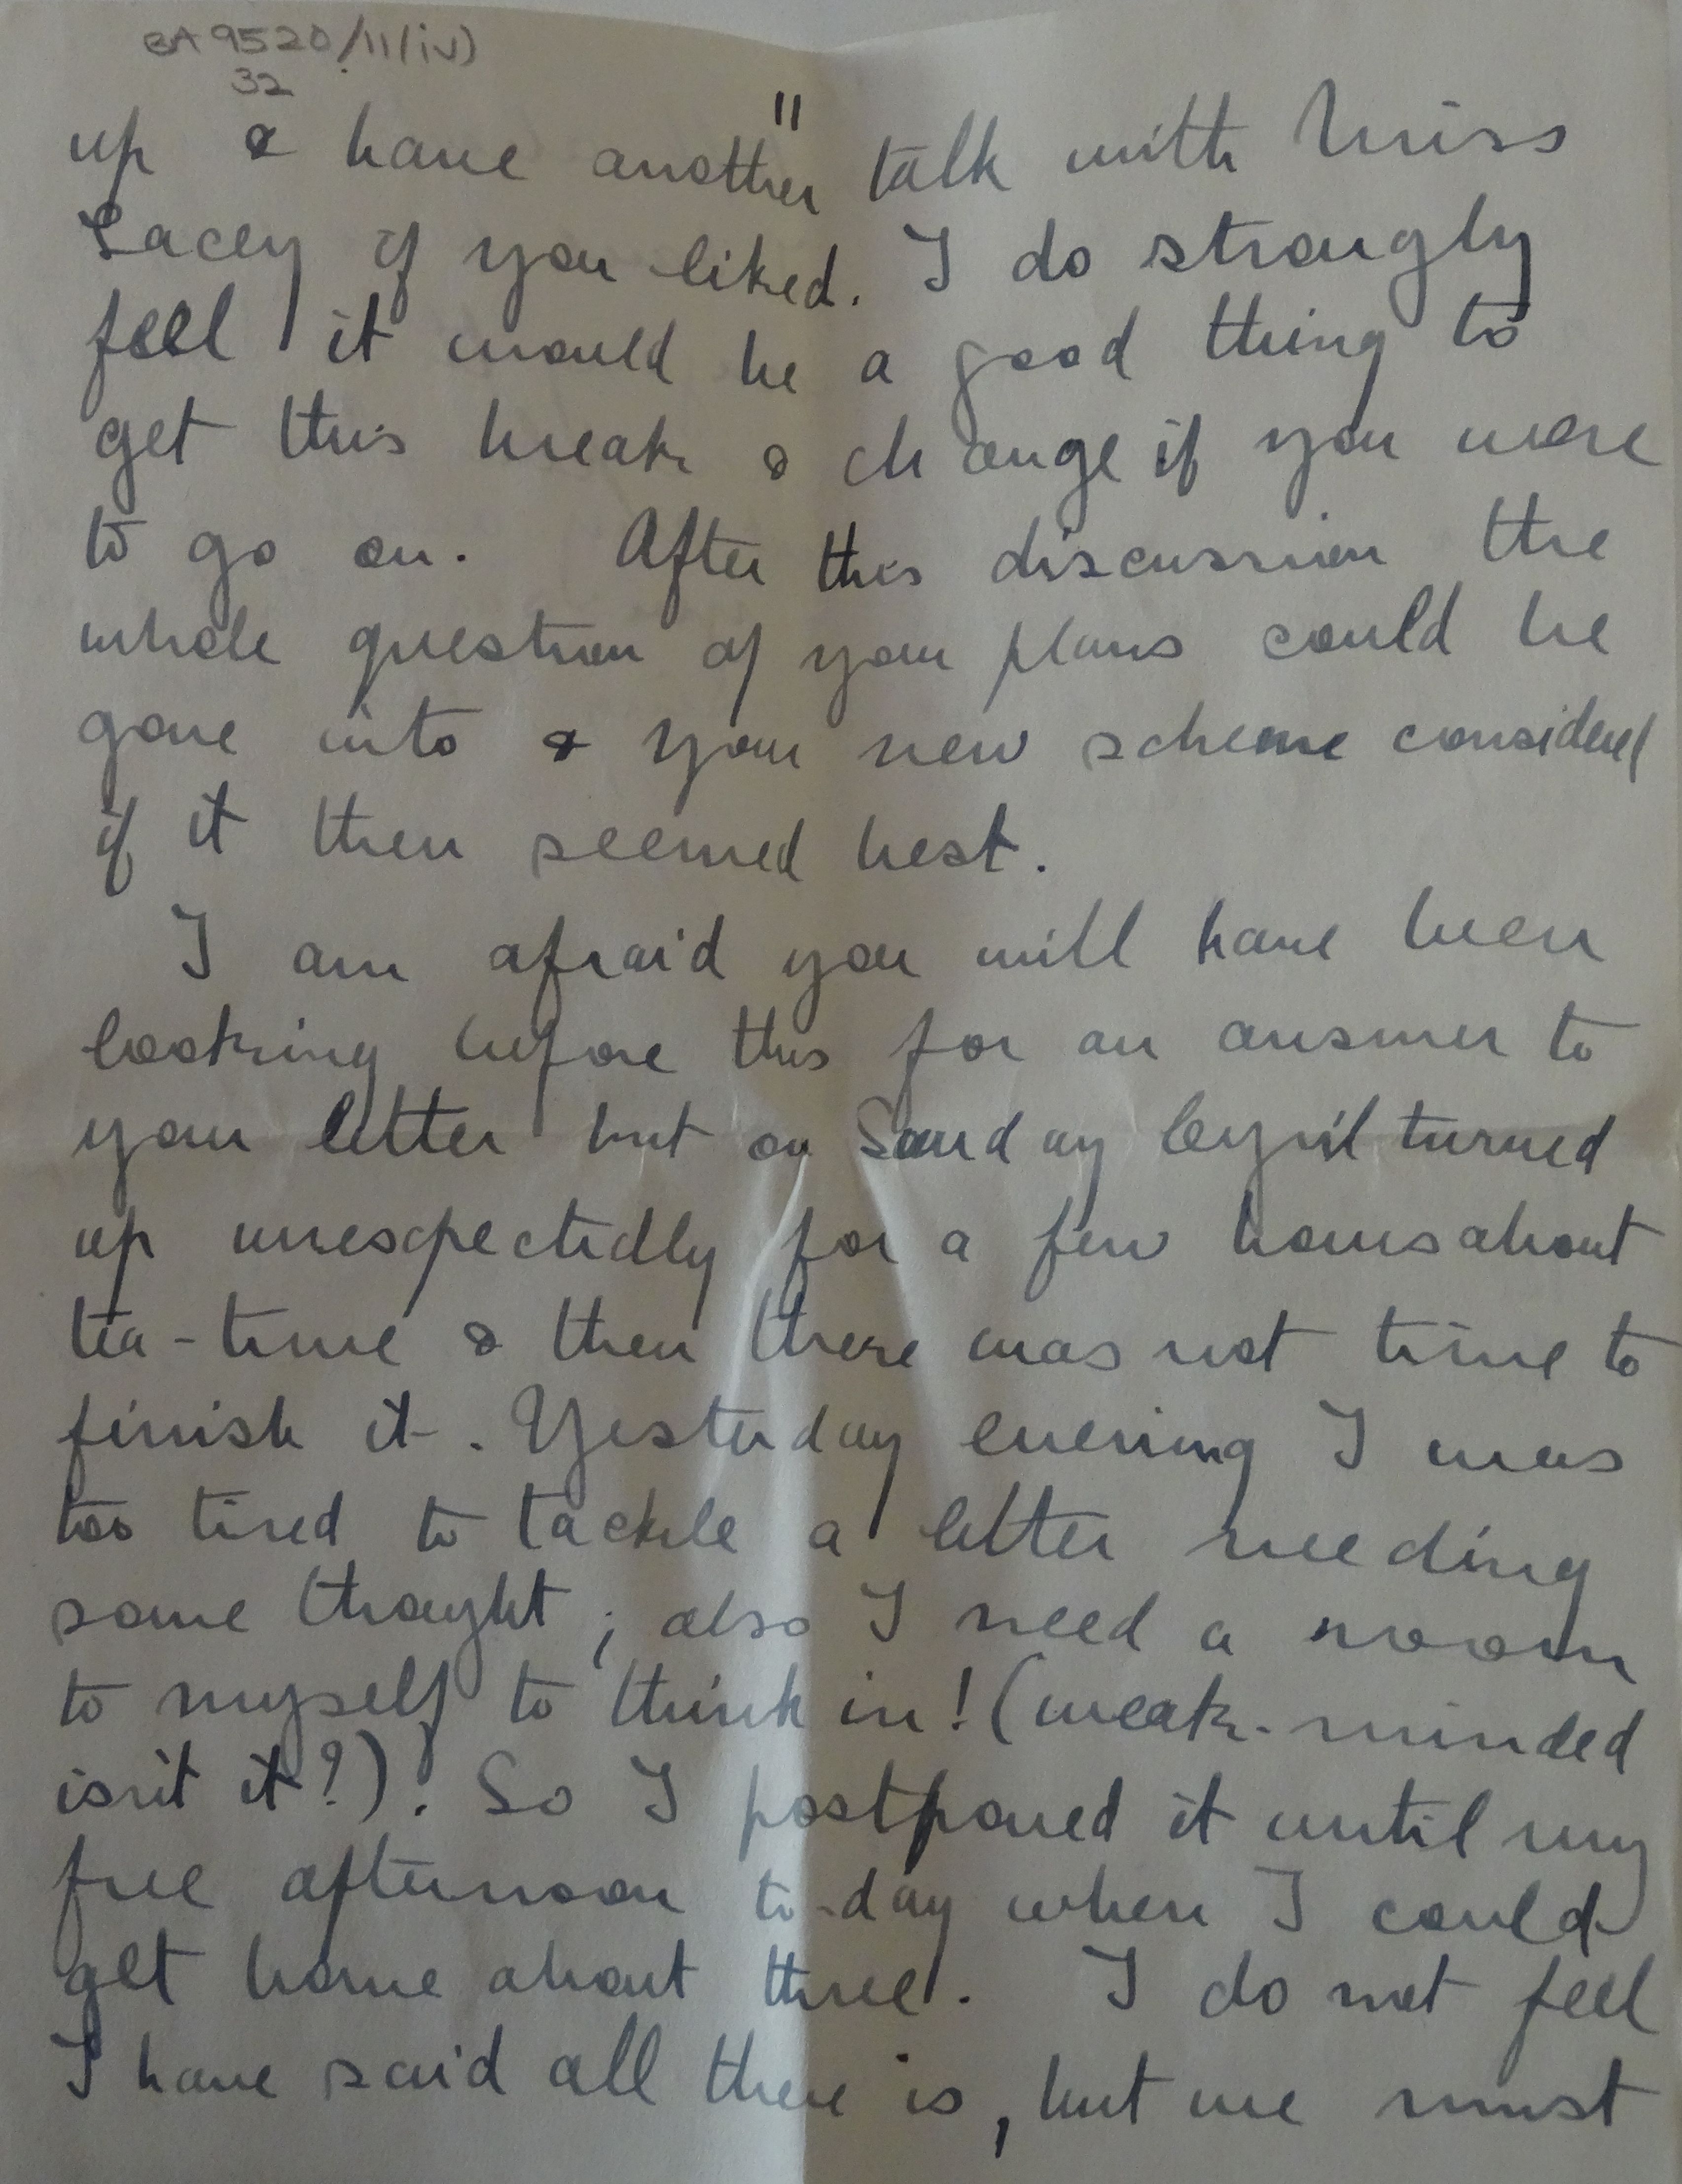 BA 9520/11(iv)
32
11
up & have another talk with Miss
Lacey if you liked. I do strongly
feel it would be a good thing to
get this break & change if you were
to go on. After this discussion the
whole question of your plans could be
gone into & your new scheme considered
if it then seemed best.
I am afraid you will have been
looking before this for an answer to
your letter but on Sunday Cyril turned
up unexpectedly for a few hours about
tea-time & then there was not time to
finish it. Yesterday evening I was
too tired to tackle a letter needing
some thought; also I need a room
to myself to think in! (weak-minded
isn't it?). So I postponed it until my
free afternoon to-day when I could
get home about three. I do not feel
I have said all there is, but we must